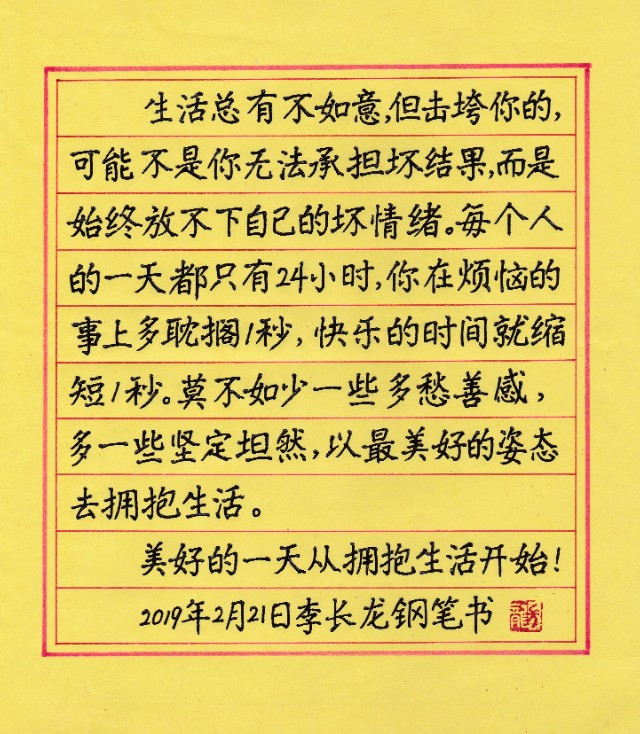 生活总有不如意,但击垮你的,
可能不是你无法承担坏结果,而是
始终放不下自己的坏情绪。每个人
的一天都只有24小时,你在烦恼的
事上多耽搁1秒,快乐的时间就缩
短1秒。莫不如少一些多愁善感,
多一些坚定坦然,以最美好的姿态
去拥抱生活。
美好的一天从拥抱生活开始!
2019年2月21日李长龙钢笔书